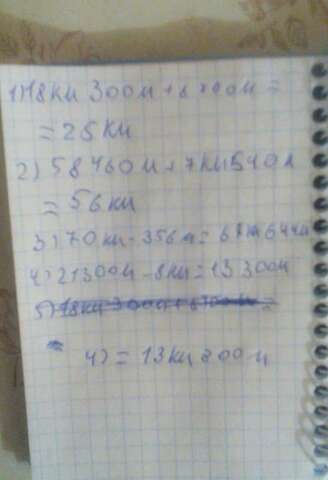 1) 18км 300м + 6700м =
= 25км
2) 58460м + 7км 540м
= 56км
3) 70км - 356м = 69км 644м
4) 21300м - 8км = 13300м
5) 18км 300м + 6700м =
4) = 13км 300м